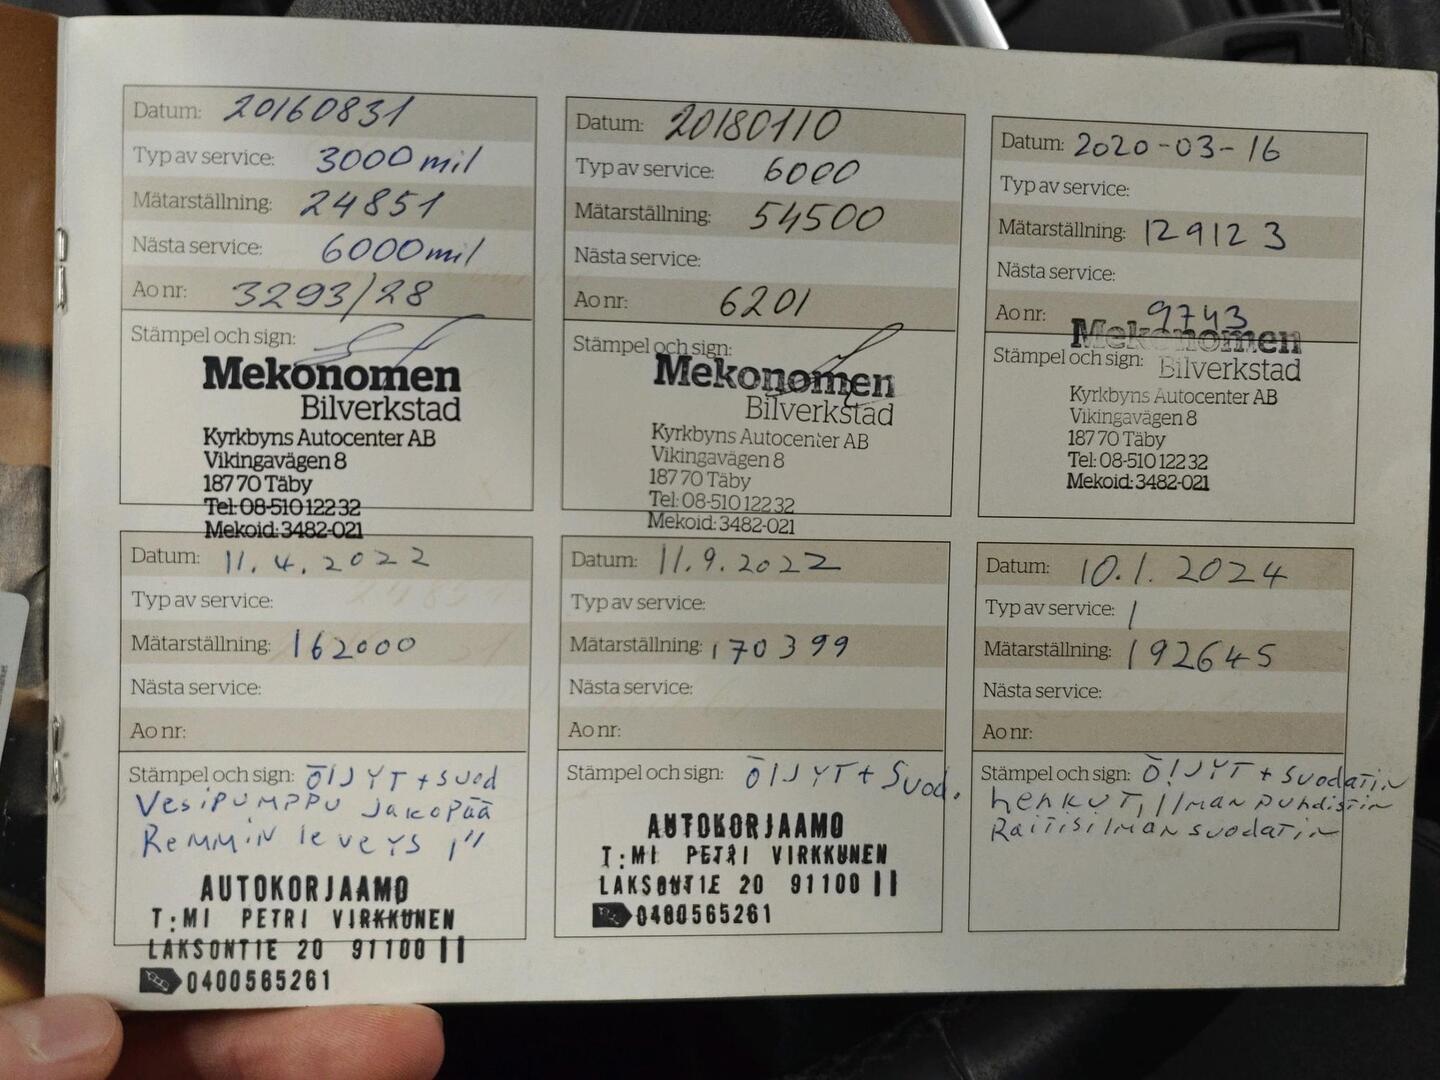 Datum: 20160831
Typ av service: 3000 mil
Mätarställning: 24851
Nästa service: 6000 mil
Ao nr: 3293/28
Stämpel och sign:
Mekonomen
Bilverkstad
Kyrkbyns Autocenter AB
Vikingavägen 8
187 70 Täby
Tel: 08-510 122 32
Mekoid: 3482-021
Datum: 20180110
Typ av service: 6000
Mätarställning: 54500
Nästa service:
Ao nr: 6201
Stämpel och sign:
Mekonomen
Bilverkstad
Kyrkbyns Autocenter AB
Vikingavägen 8
187 70 Täby
Tel: 08-510 122 32
Mekoid: 3482-021
Datum: 2020-03-16
Typ av service:
Mätarställning: 129123
Nästa service:
Ao nr: 9743
Stämpel och sign:
Mekonomen
Bilverkstad
Kyrkbyns Autocenter AB
Vikingavägen 8
187 70 Täby
Tel: 08-510 122 32
Mekoid: 3482-021
Datum: 11.4.2022
Typ av service:
Mätarställning: 162000
Nästa service:
Ao nr:
Stämpel och sign: ÖljYT + Suod
VesiPUMPPU JakoPää
ReMMiN leveys 1"
AUTOKORJAAMO
T:MI PETRI VIRKKUNEN
LAKSONTIE 20 91100 II
0400565261
Datum: 11.9.2022
Typ av service:
Mätarställning: 170399
Nästa service:
Ao nr:
Stämpel och sign: ÖlJYT + Suod.
AUTOKORJAAMO
T:MI PETRI VIRKKUNEN
LAKSONTIE 20 91100 II
0400565261
Datum: 10.1.2024
Typ av service: 1
Mätarställning: 192645
Nästa service:
Ao nr:
Stämpel och sign: ÖlJYT + Suodatin
henkuT, ilman puhdistin
Raitisilman suodatin